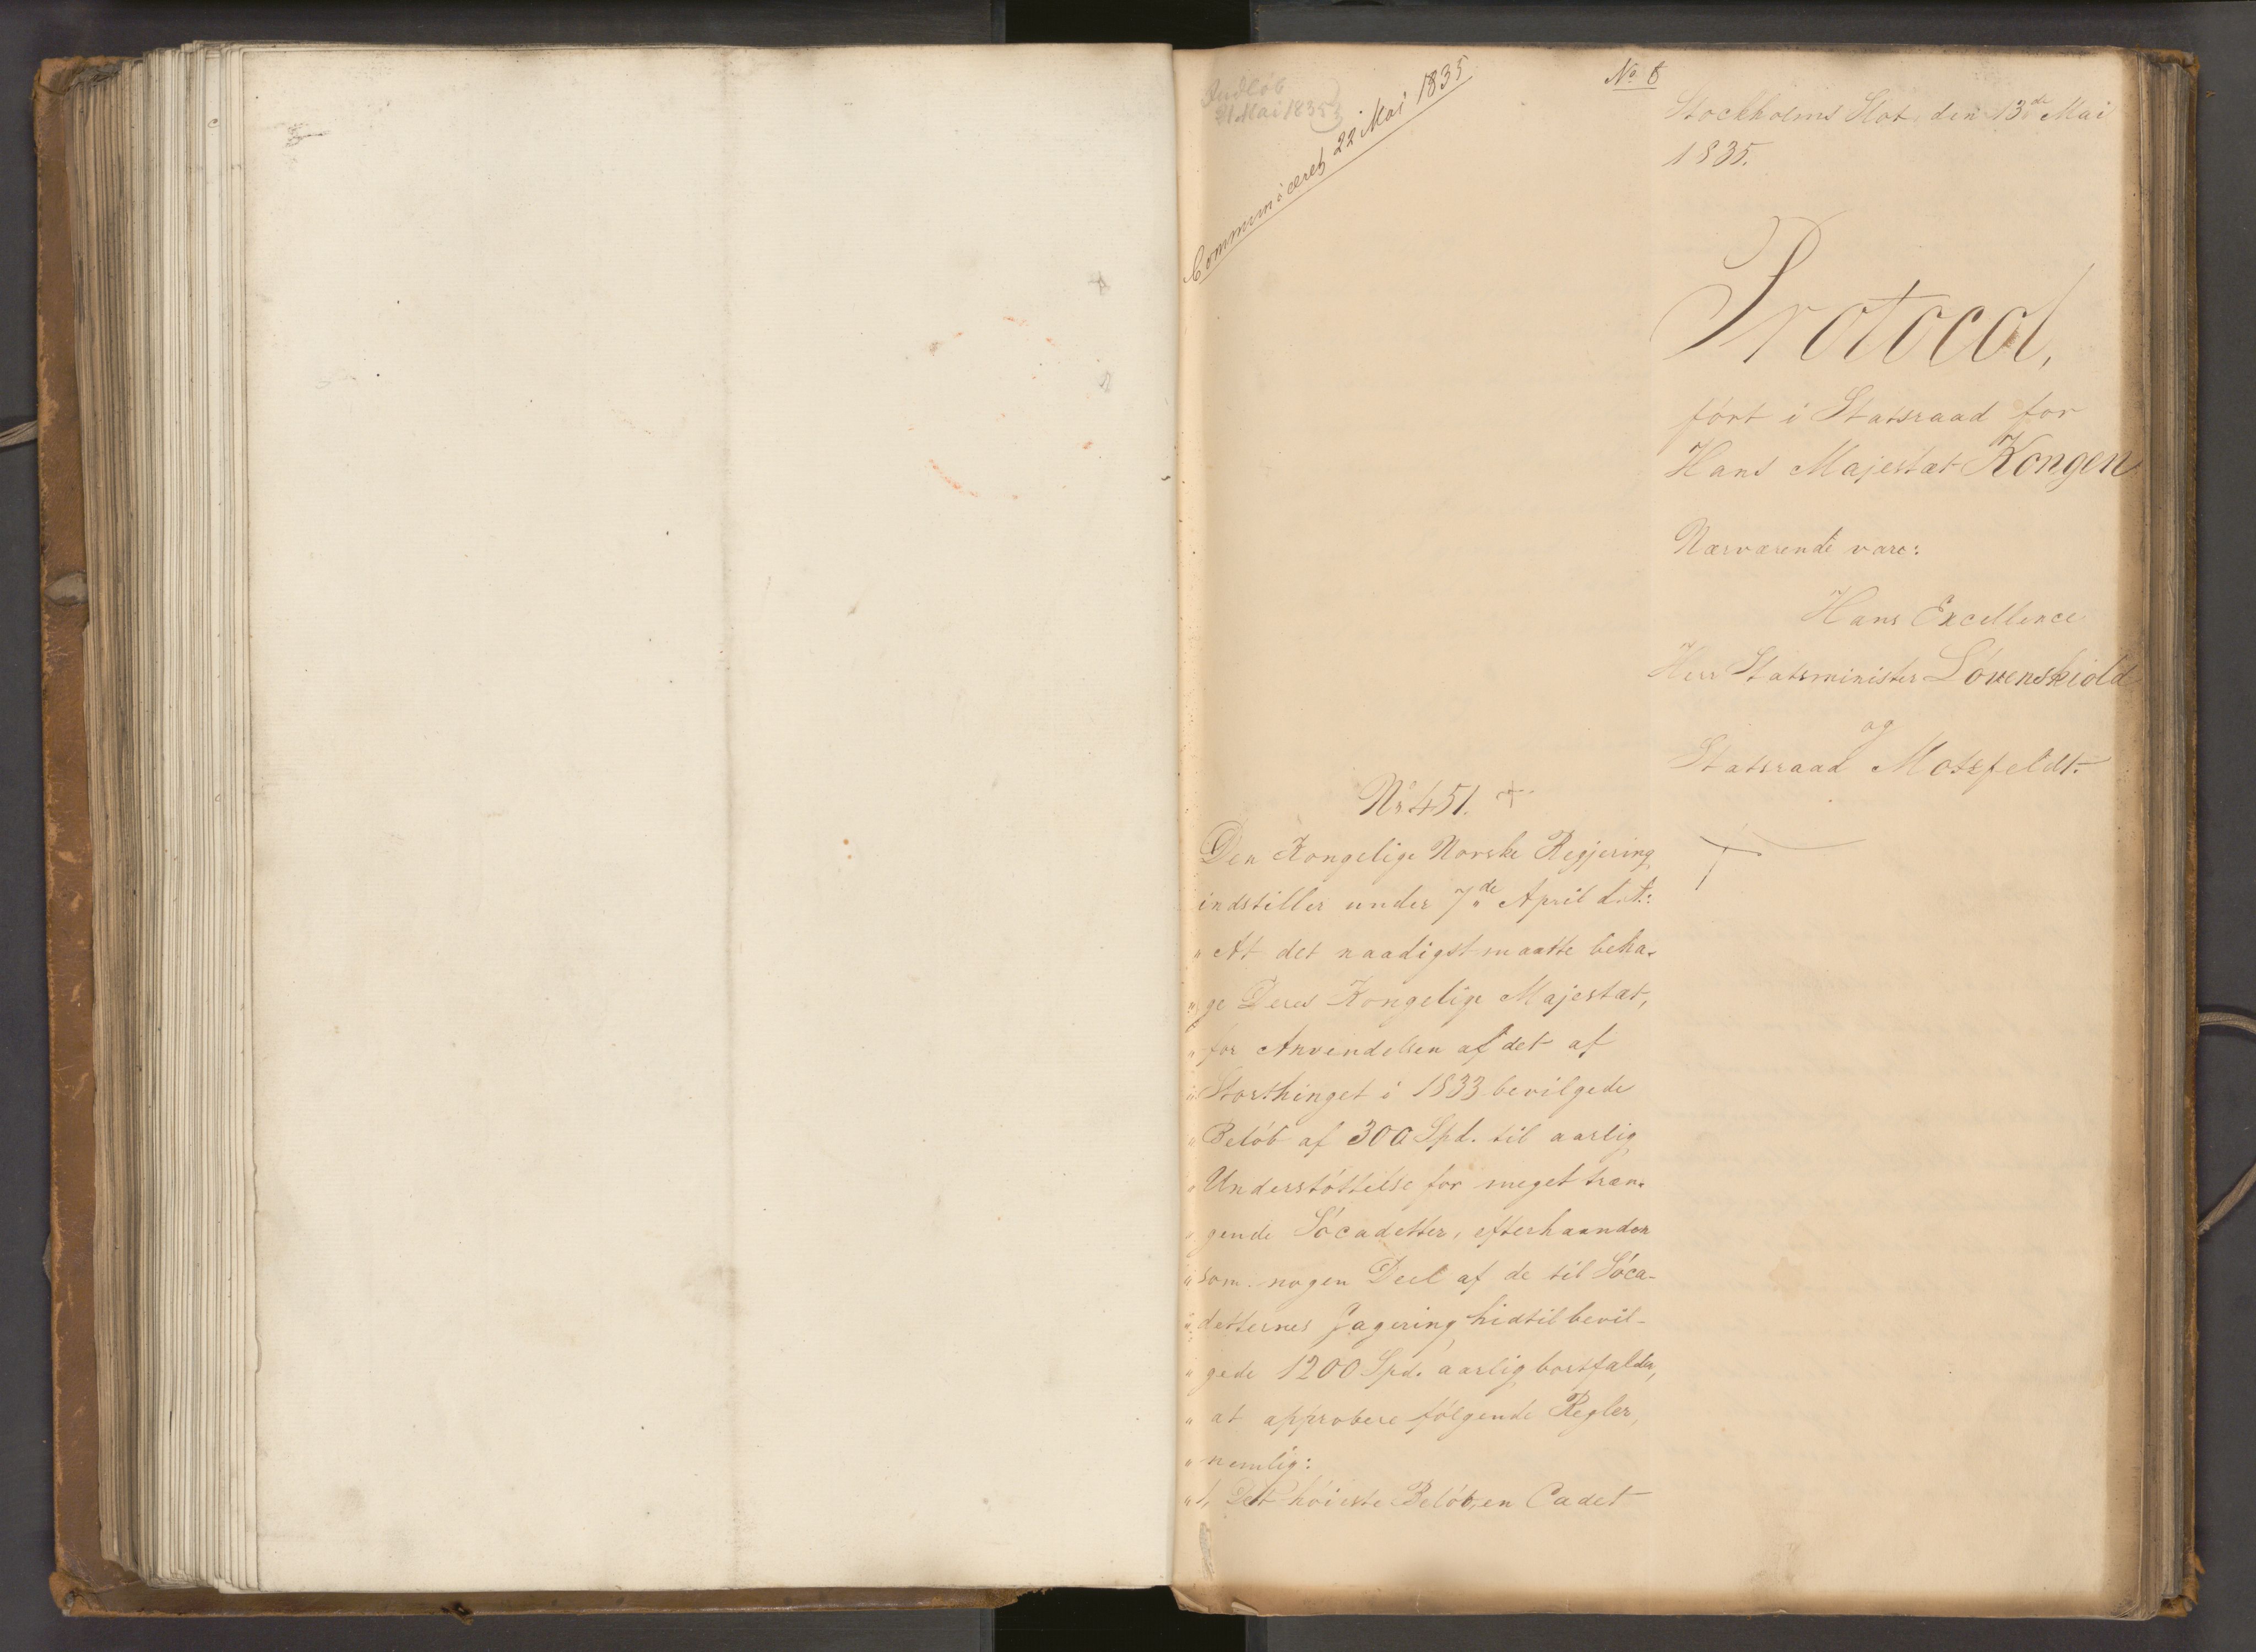 Indløb
21 Mai 1835
Communiceret 22 Mai 1835
No. 8
Stockholms Slot den 13de Mai
1835.
Protocol,
ført i Statsraad for
Hans Majestæt Kongen
Nærværende vare:
Hans Excellence
Herr Statsminister Løvenskiold
og
Statsraad Motzfeldt.
Nr 451. +
Den Kongelige Norske Regjering
indstiller under 7de April d. A.:
"At det naadigst maatte beha-
"ge Deres Kongelige Majestæt,
"for Anvendelsen af det af
"Storthinget i 1833 bevilgede
"Beløb af 300 Spd. til aarlig
"Understøttelse for meget træn-
"gende Søcadetter, efterhaanden
"som nogen Deel af de til Søca-
"detternes Gagering hidtil bevil-
"gede 1200 Spd. aarlig bortfalder,
"at approbere følgende Regler,
"nemlig:
"1, Det høieste Beløb, en Cadet